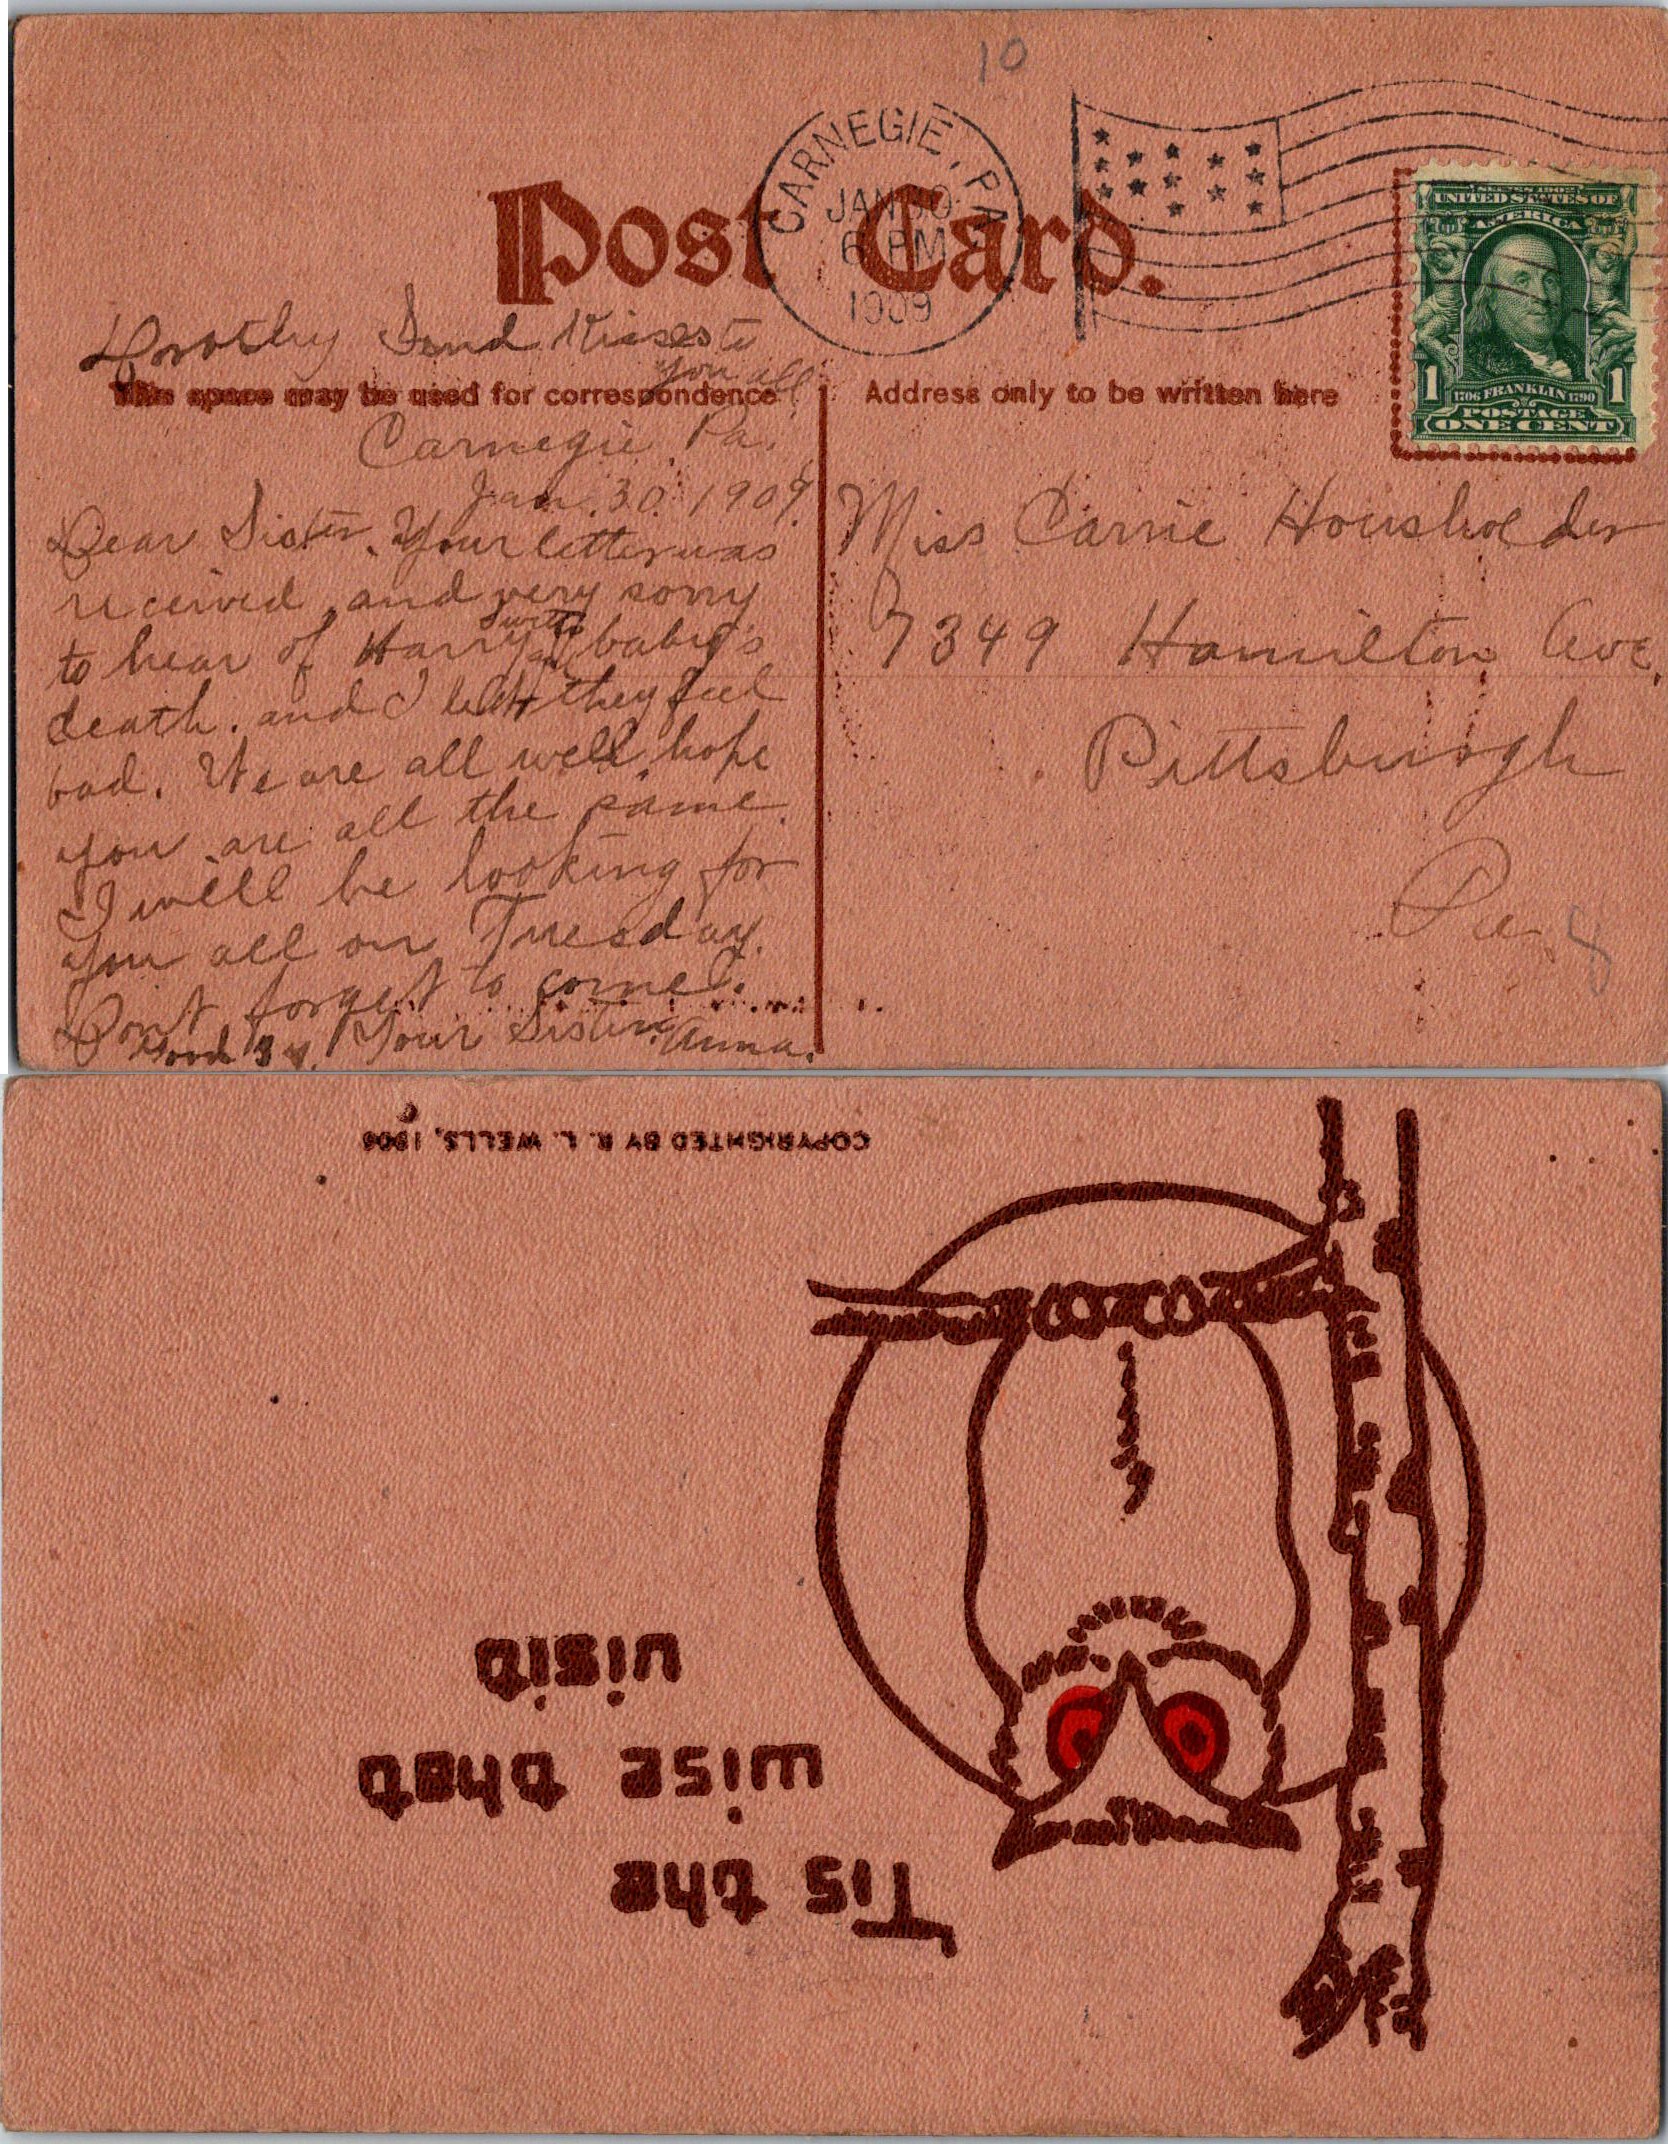 10
CARNEGIE, PA.
JAN 30
6 PM
1909
Post Card.
UNITED STATES OF
AMERICA
1 1
1706 FRANKLIN 1790
POSTAGE
ONE CENT
Dorothy Send Kisses to
you all
This space may be used for correspondence
Address only to be written here
Carnegie, Pa.
Jan. 30. 1909.
Dear Sister, Your letter was
received, and very sorry
to hear of Harry baby's
death. and I they feel
bad. We are all well, hope
you are all the same.
I will be looking for
you all on Tuesday.
Don't forget to come.
Good By. Your Sister, Anna.
Miss Carrie Housholder
7349 Hamilton Ave,
Pittsburgh
Pa.
8
Tis the
wise that
visit
COPYRIGHTED BY R. L. WELLS, 1906